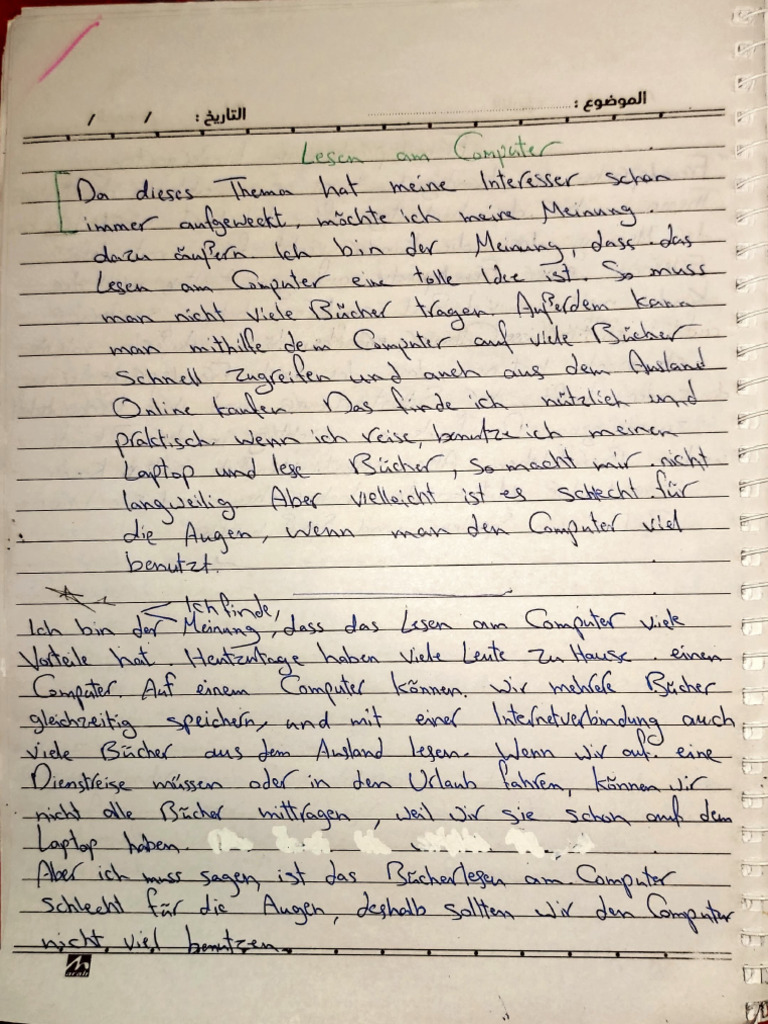 الموضوع :
التاريخ : / /
Lesen am Computer
Da dieses Thema hat meine Interesser schon
immer aufgeweckt, möchte ich meine Meinung
dazu äußern. Ich bin der Meinung, dass das
Lesen am Computer eine tolle Idee ist. So muss
man nicht viele Bücher tragen. Außerdem kann
man mithilfe dem Computer auf viele Bücher
schnell zugreifen und auch aus dem Ausland
Online kaufen. Das finde ich nützlich und
praktisch. Wenn ich reise, benutze ich meinen
Laptop und lese Bücher, so macht mir nicht
langweilig. Aber vielleicht ist es schlecht für
die Augen, wenn man den Computer viel
benutzt.
Ich finde,
Ich bin der Meinung, dass das Lesen am Computer viele
Vorteile hat. Heutzutage haben viele Leute zu Hause einen
Computer. Auf einem Computer können wir mehrere Bücher
gleichzeitig speichern, und mit einer Internetverbindung auch
viele Bücher aus dem Ausland lesen. Wenn wir auf eine
Dienstreise müssen oder in den Urlaub fahren, können wir
nicht alle Bücher mittragen, weil wir sie schon auf dem
Laptop haben.
Aber ich muss sagen, ist das Bücherlesen am Computer
schlecht für die Augen, deshalb sollten wir den Computer
nicht viel benutzen.
arab